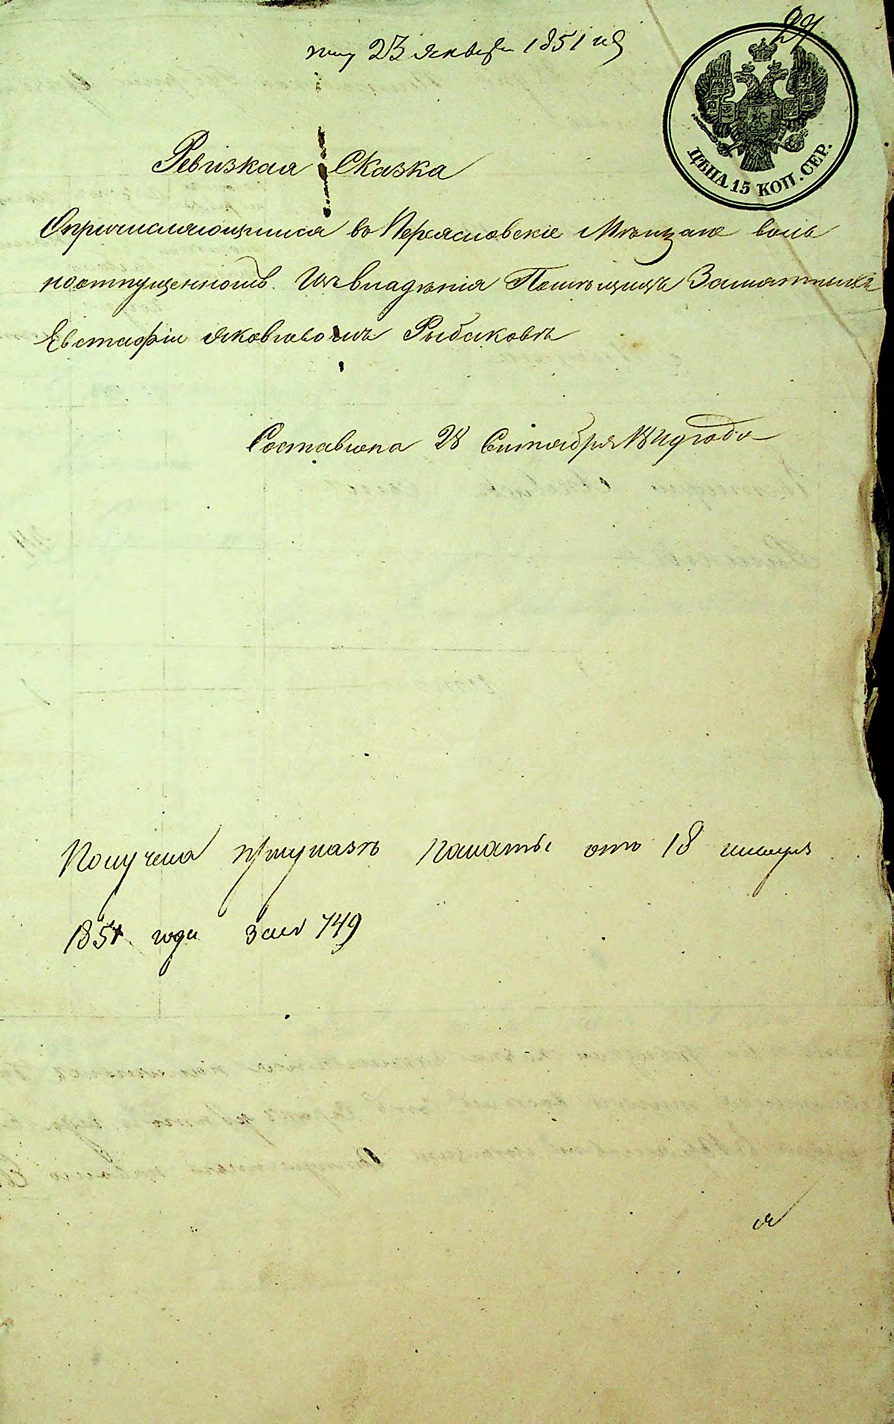 23 января 1851 г
29
ЦѢНА 15 КОП. СЕР.
Ревизкая Сказка
Опричисляющимся во Переясловские Мѣщане воль
ноотпущенномъ Изъ владѣнія Помѣщицъ Заматниной
Евстафіи Яковлевомъ Рыбаковѣ
Составлена 28 Сентября 1849 года
Получена при указѣ Палаты отъ 18 января
1851 года за № 749